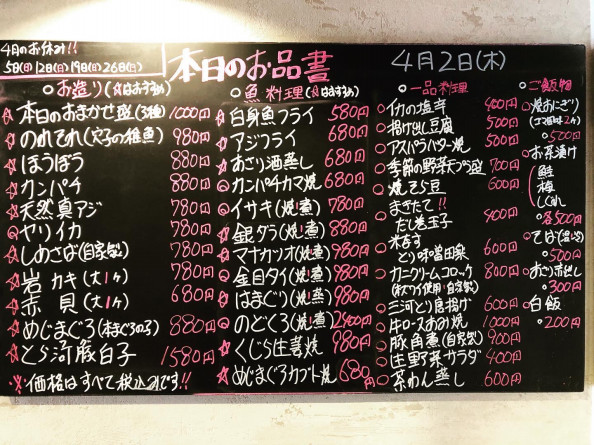 4月のお休み!!
5日(日)12日(日)19日(日)26日(日)
本日のお品書
4月2日(木)
○お造り(☆はおすすめ)
☆本日のおまかせ盛(3種) 1000円
☆のれそれ(穴子の稚魚) 980円
☆ほうぼう 880円
☆カンパチ 880円
☆天然真アジ 780円
○ヤリイカ 780円
☆しめさば(自家製) 780円
☆岩カキ(大1ヶ) 780円
☆赤貝(大1ヶ) 680円
☆めじまぐろ(本まぐろの子) 880円
☆とら河豚白子 1580円
※価格はすべて税込みです!!
○魚料理(☆はおすすめ)
☆白身魚フライ 580円
☆アジフライ 580円
☆あさり酒蒸し 680円
○カンパチカマ焼 680円
○イサキ(焼!煮) 780円
☆銀ダラ(焼!煮) 980円
○マナカツオ(焼!煮) 980円
○金目タイ(焼!煮) 980円
☆はまぐり(焼!蒸) 980円
○のどくろ(焼!煮) 2400円
☆くじら生姜焼 980円
☆めじまぐろカブト焼 680円
○一品料理
○イカの塩辛 400円
○揚げ出し豆腐 500円
○アスパラバター焼 500円
○季節の野菜天ぷら盛 700円
○焼そら豆 600円
○まきたて!!
だし巻玉子 400円
○米なす
とり味噌田楽 600円
○カニクリームコロッケ 800円
○三河とり唐揚げ 600円
○牛ロースおみ焼 1000円
○豚角煮(自家製) 900円
○生野菜サラダ 400円
○茶わん蒸し 600円
○ご飯物
○焼おにぎり
○500円
○お茶漬け
鮭
梅
しぐれ
○各500円
○500円
○あおさ赤だし
○300円
○白飯
○200円